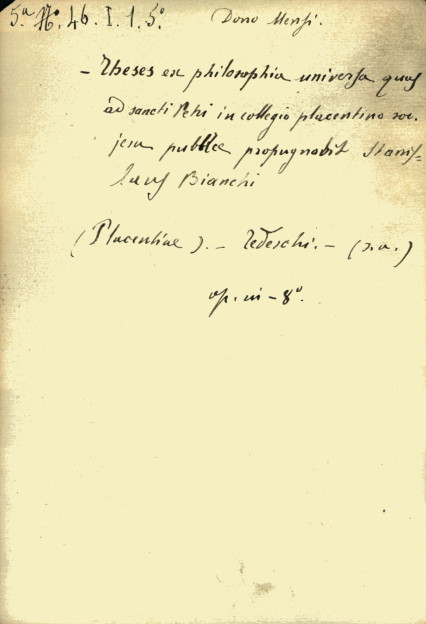 5.ª Nº. 46. I. 1. 5º. Dono Mensi.
- Theses ex philosophia universa quas
ad sancti Petri in collegio placentino soc.
jesu publice propugnabit Stanis=
laus Bianchi
(Placentiae). - Tedeschi. - (s.a.)
op. in - 8º.